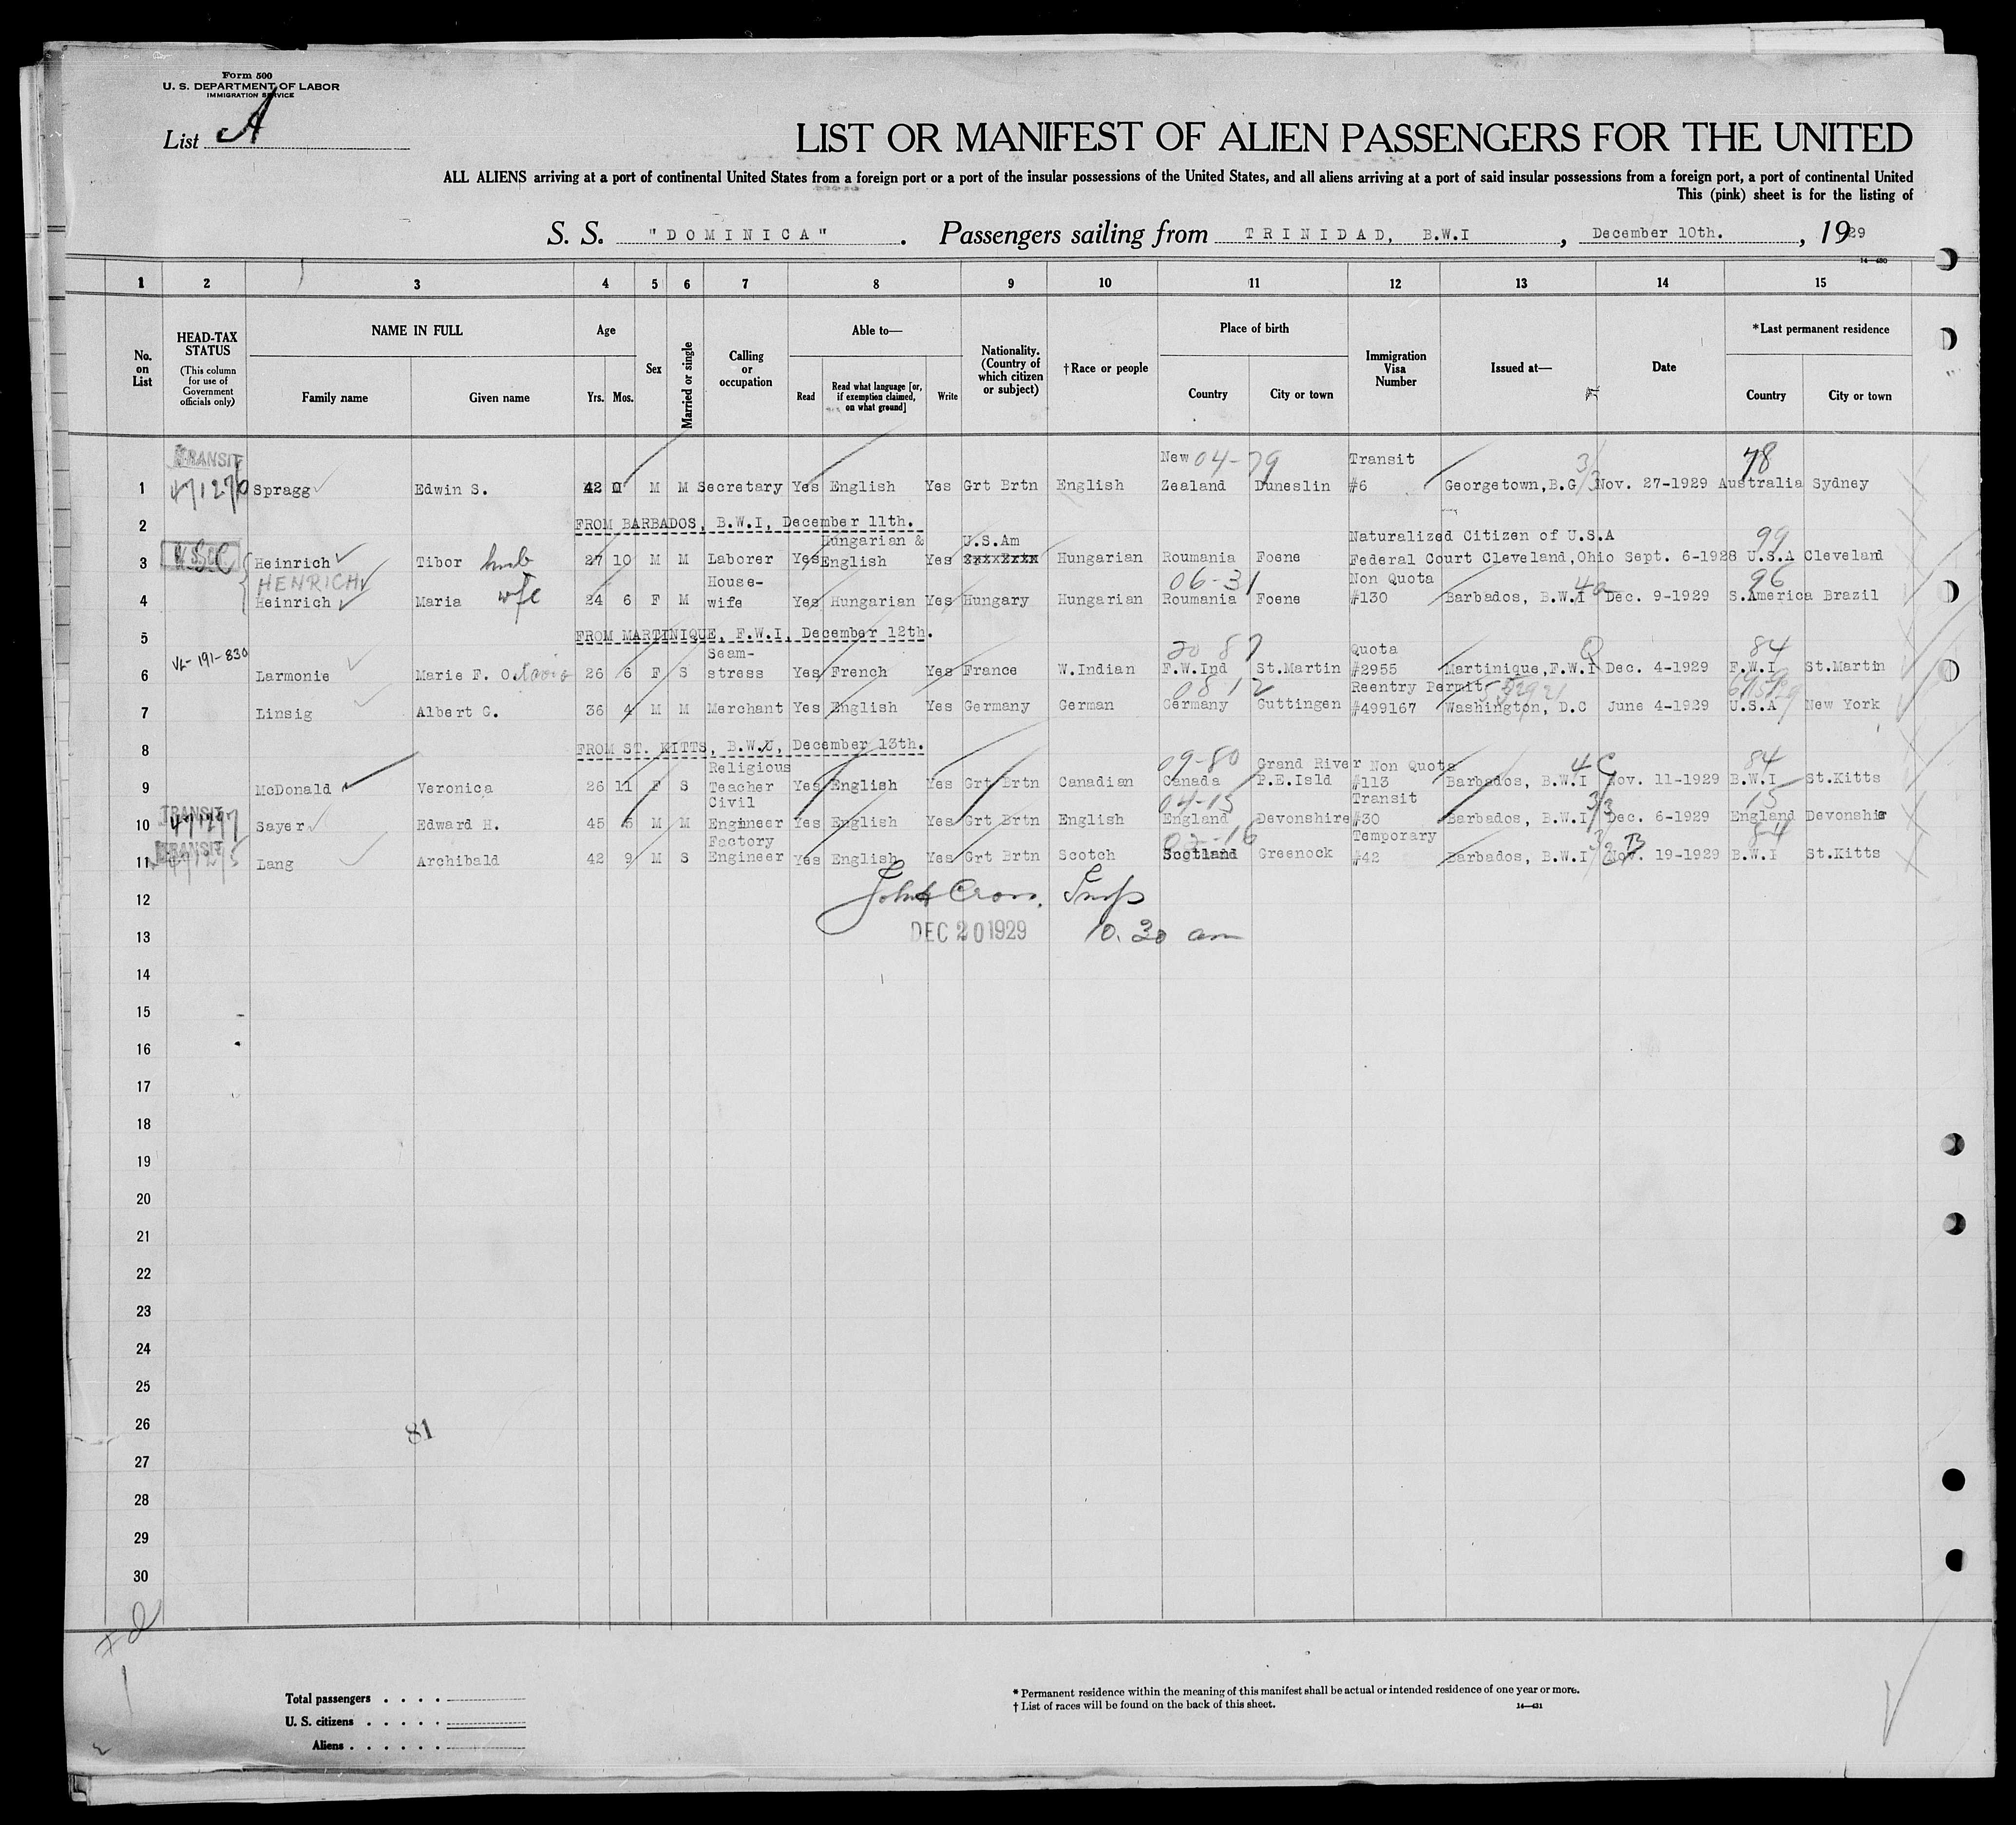 Form 500
U. S. DEPARTMENT OF LABOR
IMMIGRATION SERVICE
List A
LIST OR MANIFEST OF ALIEN PASSENGERS FOR THE UNITED
ALL ALIENS arriving at a port of continental United States from a foreign port or a port of the insular possessions of the United States, and all aliens arriving at a port of said insular possessions from a foreign port, a port of continental United
This (pink) sheet is for the listing of
S. S. "DOMINICA" . Passengers sailing from TRINIDAD, B.W.I , December 10th. , 1929
14—430
1 2 3 4 5 6 7 8 9 10 11 12 13 14 15
No. on List
HEAD-TAX STATUS
(This column for use of Government officials only)
NAME IN FULL
Family name Given name
Age
Yrs. Mos.
Sex
Married or single
Calling or occupation
Able to—
Read Read what language [or, if exemption claimed, on what ground] Write
Nationality. (Country of which citizen or subject)
†Race or people
Place of birth
Country City or town
Immigration Visa Number
Issued at—
Date
*Last permanent residence
Country City or town
TRANSIT New 04-79 Transit 3/3 78
1 471276 Spragg Edwin S. 42 M M Secretary Yes English Yes Grt Brtn English Zealand Duneslin #6 Georgetown,B.G Nov. 27-1929 Australia Sydney
2 FROM BARBADOS, B.W.I, December 11th.
Hungarian & U.S.Am Naturalized Citizen of U.S.A 99
3 USC Heinrich Tibor husb 27 10 M M Laborer Yes English Yes Hungarian Roumania Foene Federal Court Cleveland,Ohio Sept. 6-1928 U.S.A Cleveland
HENRICH wfe House- 06-31 Non Quota 96
4 Heinrich Maria 24 6 F M wife Yes Hungarian Yes Hungary Hungarian Roumania Foene #130 Barbados, B.W.I Dec. 9-1929 S.America Brazil
5 FROM MARTINIQUE, F.W.I, December 12th.
VL-191-830 Seam- 20 87 Quota Q 84
6 Larmonie Marie F. 26 6 F S stress Yes French Yes France W.Indian F.W.Ind St.Martin #2955 Martinique,F.W.I Dec. 4-1929 F.W.I St.Martin
08 12 Reentry Permit
7 Linsig Albert C. 36 4 M M Merchant Yes English Yes Germany German Germany Guttingen #499167 Washington, D.C June 4-1929 U.S.A New York
8 FROM ST. KITTS, B.W.I, December 13th.
Religious 09-80 Grand River Non Quota 4C 84
9 McDonald Veronica 26 11 F S Teacher Yes English Yes Grt Brtn Canadian Canada P.E.Isld #113 Barbados, B.W.I Nov. 11-1929 B.W.I St.Kitts
TRANSIT Civil 04-15 Transit 3/3 15
10 471277 Sayer Edward H. 45 5 M M Engineer Yes English Yes Grt Brtn English England Devonshire #30 Barbados, B.W.I Dec. 6-1929 England Devonshire
TRANSIT Factory 02-16 Temporary 3/2 B 84
11 Lang Archibald 42 9 M S Engineer Yes English Yes Grt Brtn Scotch Scotland Greenock #42 Barbados, B.W.I Nov. 19-1929 B.W.I St.Kitts
12 John Cross, Insp
13 DEC 20 1929 10.30 am
14
15
16
17
18
19
20
21
22
23
24
25
26 81
27
28
29
30
Total passengers . . . .
U. S. citizens . . . . .
Aliens . . . . . .
* Permanent residence within the meaning of this manifest shall be actual or intended residence of one year or more.
† List of races will be found on the back of this sheet. 14—431